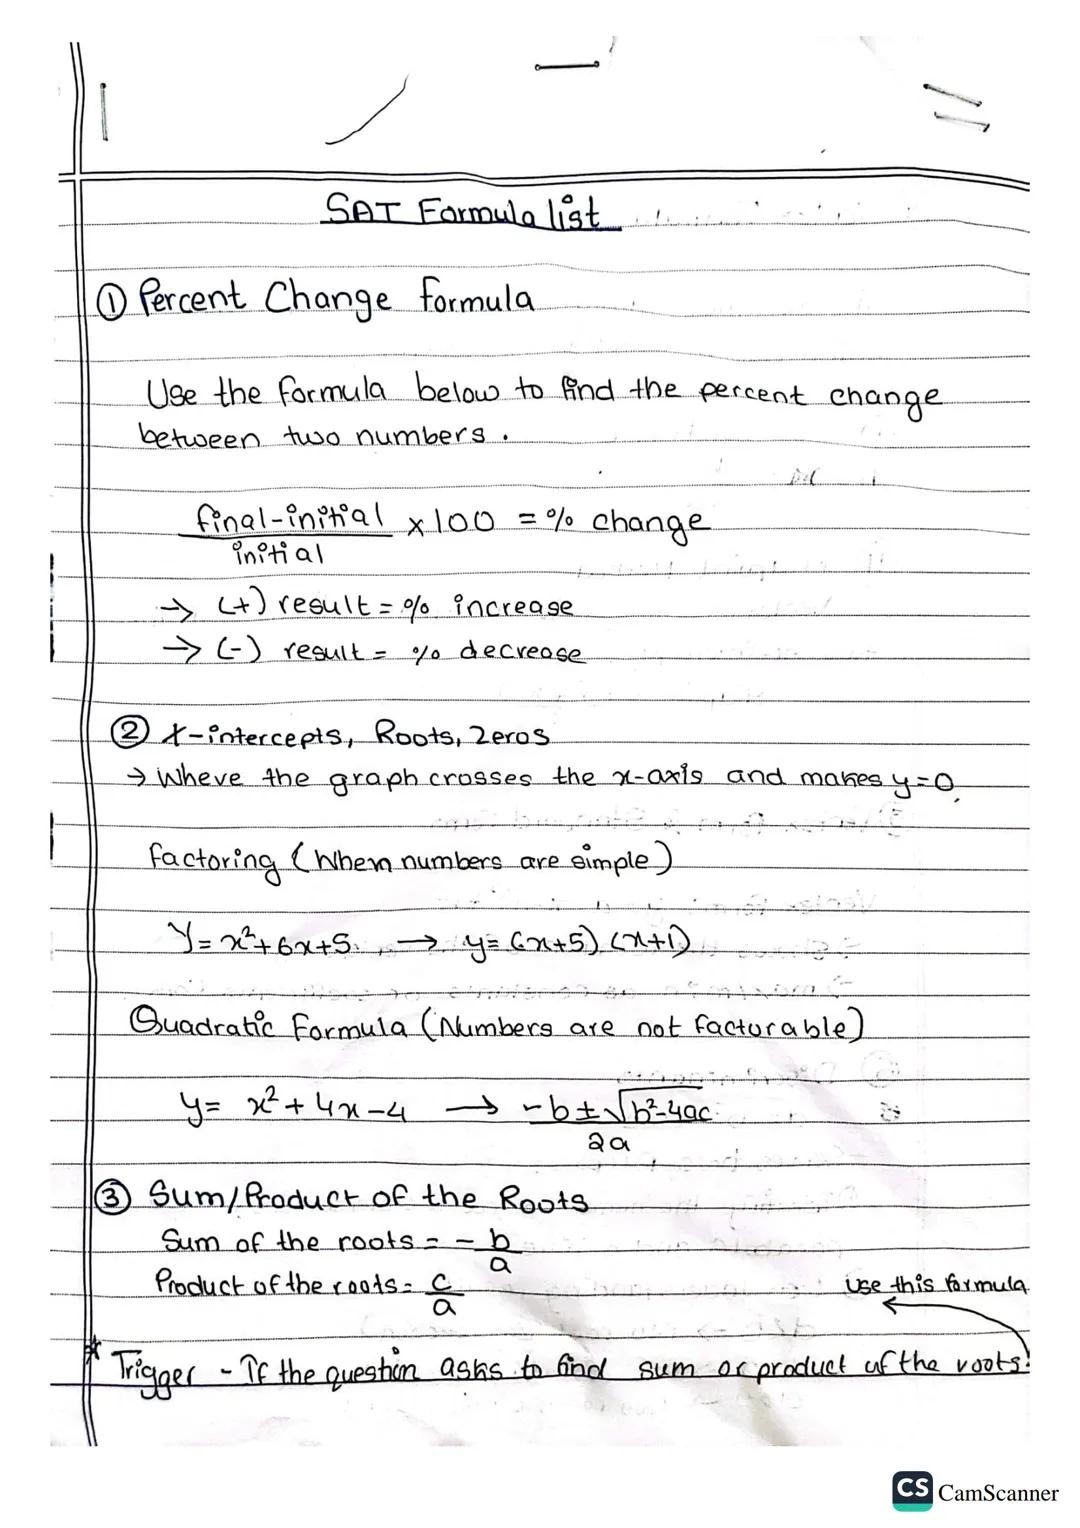 SAT Formula list
① Percent Change formula
Use the formula below to find the percent change
between two numbers.
final-initial
initial
x100 = % change
→ (+) result = % increase
→ (-) result = % decrease
② X-intercepts, Roots, Zeros
→ Where the graph crosses the x-axis and makes y=0.
factoring (When numbers are simple)
Y= x²+6x+5 → y= (x+5) (x+1)
Quadratic Formula (Numbers are not factorable)
y= x² + 4x-4 → -b±√b²-4ac
2a
③ Sum/Product of the Roots
Sum of the roots = - b
a
Product of the roots = c
a
Use this formula
* Trigger - If the question asks to find sum or product of the roots.
CS CamScanner